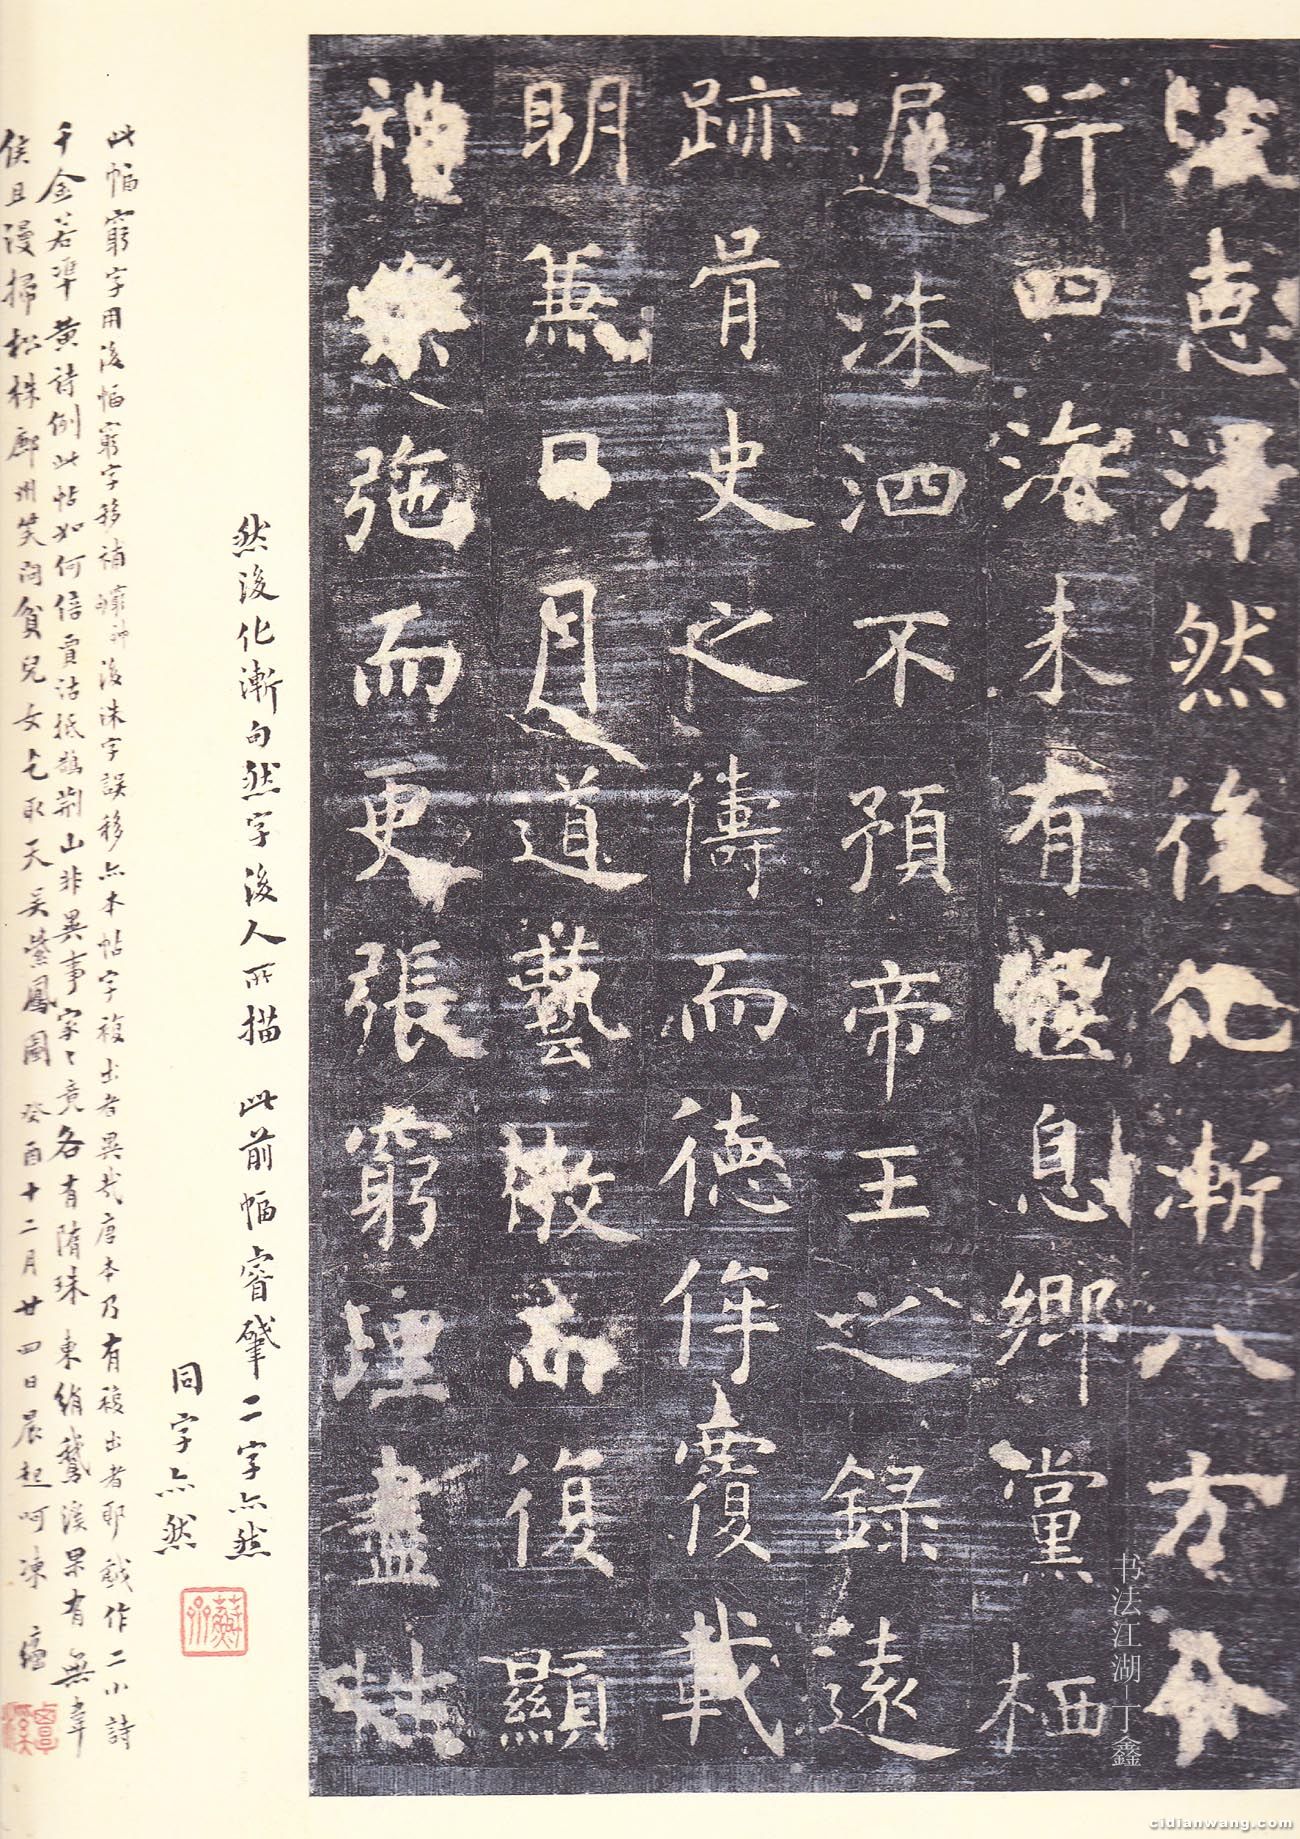 恵澤然後化漸八方令
行四海未有偃息鄉黨栖
遲洙泗不預帝王之錄遠
跡胥史之儔而德侔覆載
明兼日月道藝微而復顯
禮樂弛而更張窮理盡性
然後化漸句然字後人所描 此前幅睿肇二字亦然
同字亦然
此幅窮字用後幅窮字移補 後洙字誤移亦本帖字複出者異哉唐本乃有複出者耶戲作二小詩
千金若準黃詩例此帖如何倍賈沽抵鵲荊山非異事家〻竟各有隋珠 東絹鵝溪果有無韋
侯且漫掃松株鄜州笑問貧兒女已取天吳紫鳳圖 癸酉十二月廿四日晨起呵凍
书法江湖丁鑫
cidianwang.com